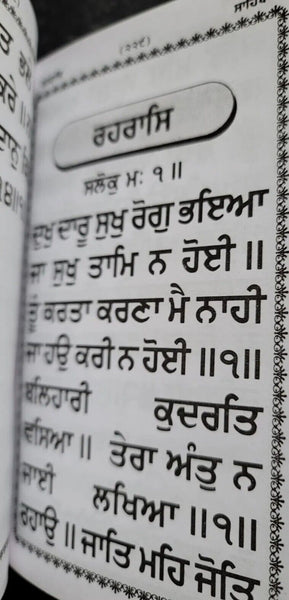 (੨੨੯)
ਰਹਰਾਸਿ
ਸਲੋਕੁ ਮਃ ੧ ॥
ਦੁਖੁ ਦਾਰੂ ਸੁਖੁ ਰੋਗੁ ਭਇਆ
ਜਾ ਸੁਖੁ ਤਾਮਿ ਨ ਹੋਈ ॥
ਤੂੰ ਕਰਤਾ ਕਰਣਾ ਮੈ ਨਾਹੀ
ਜਾ ਹਉ ਕਰੀ ਨ ਹੋਈ ॥੧॥
ਬਲਿਹਾਰੀ ਕੁਦਰਤਿ
ਵਸਿਆ ॥ ਤੇਰਾ ਅੰਤੁ ਨ
ਜਾਈ ਲਖਿਆ ॥੧॥
ਰਹਾਉ ॥ ਜਾਤਿ ਮਹਿ ਜੋਤਿ